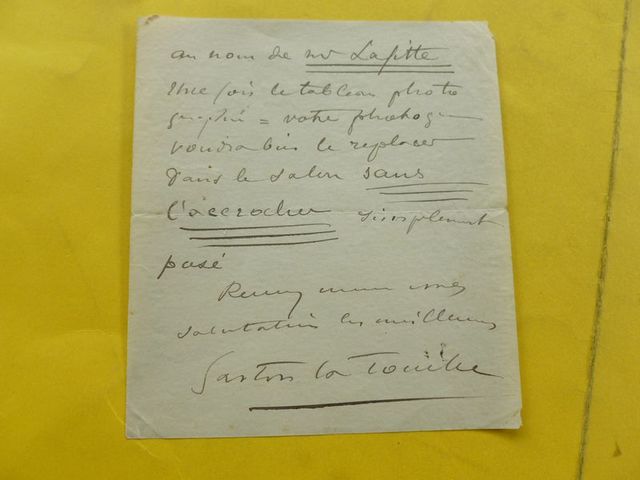 au nom de Mr Lafitte
Une fois le tableau photo
graphié = votre photog
voudra bien le replacer
dans le salon sans
l'accrocher simplement
posé
salutations les meilleures
Gaston La Touche